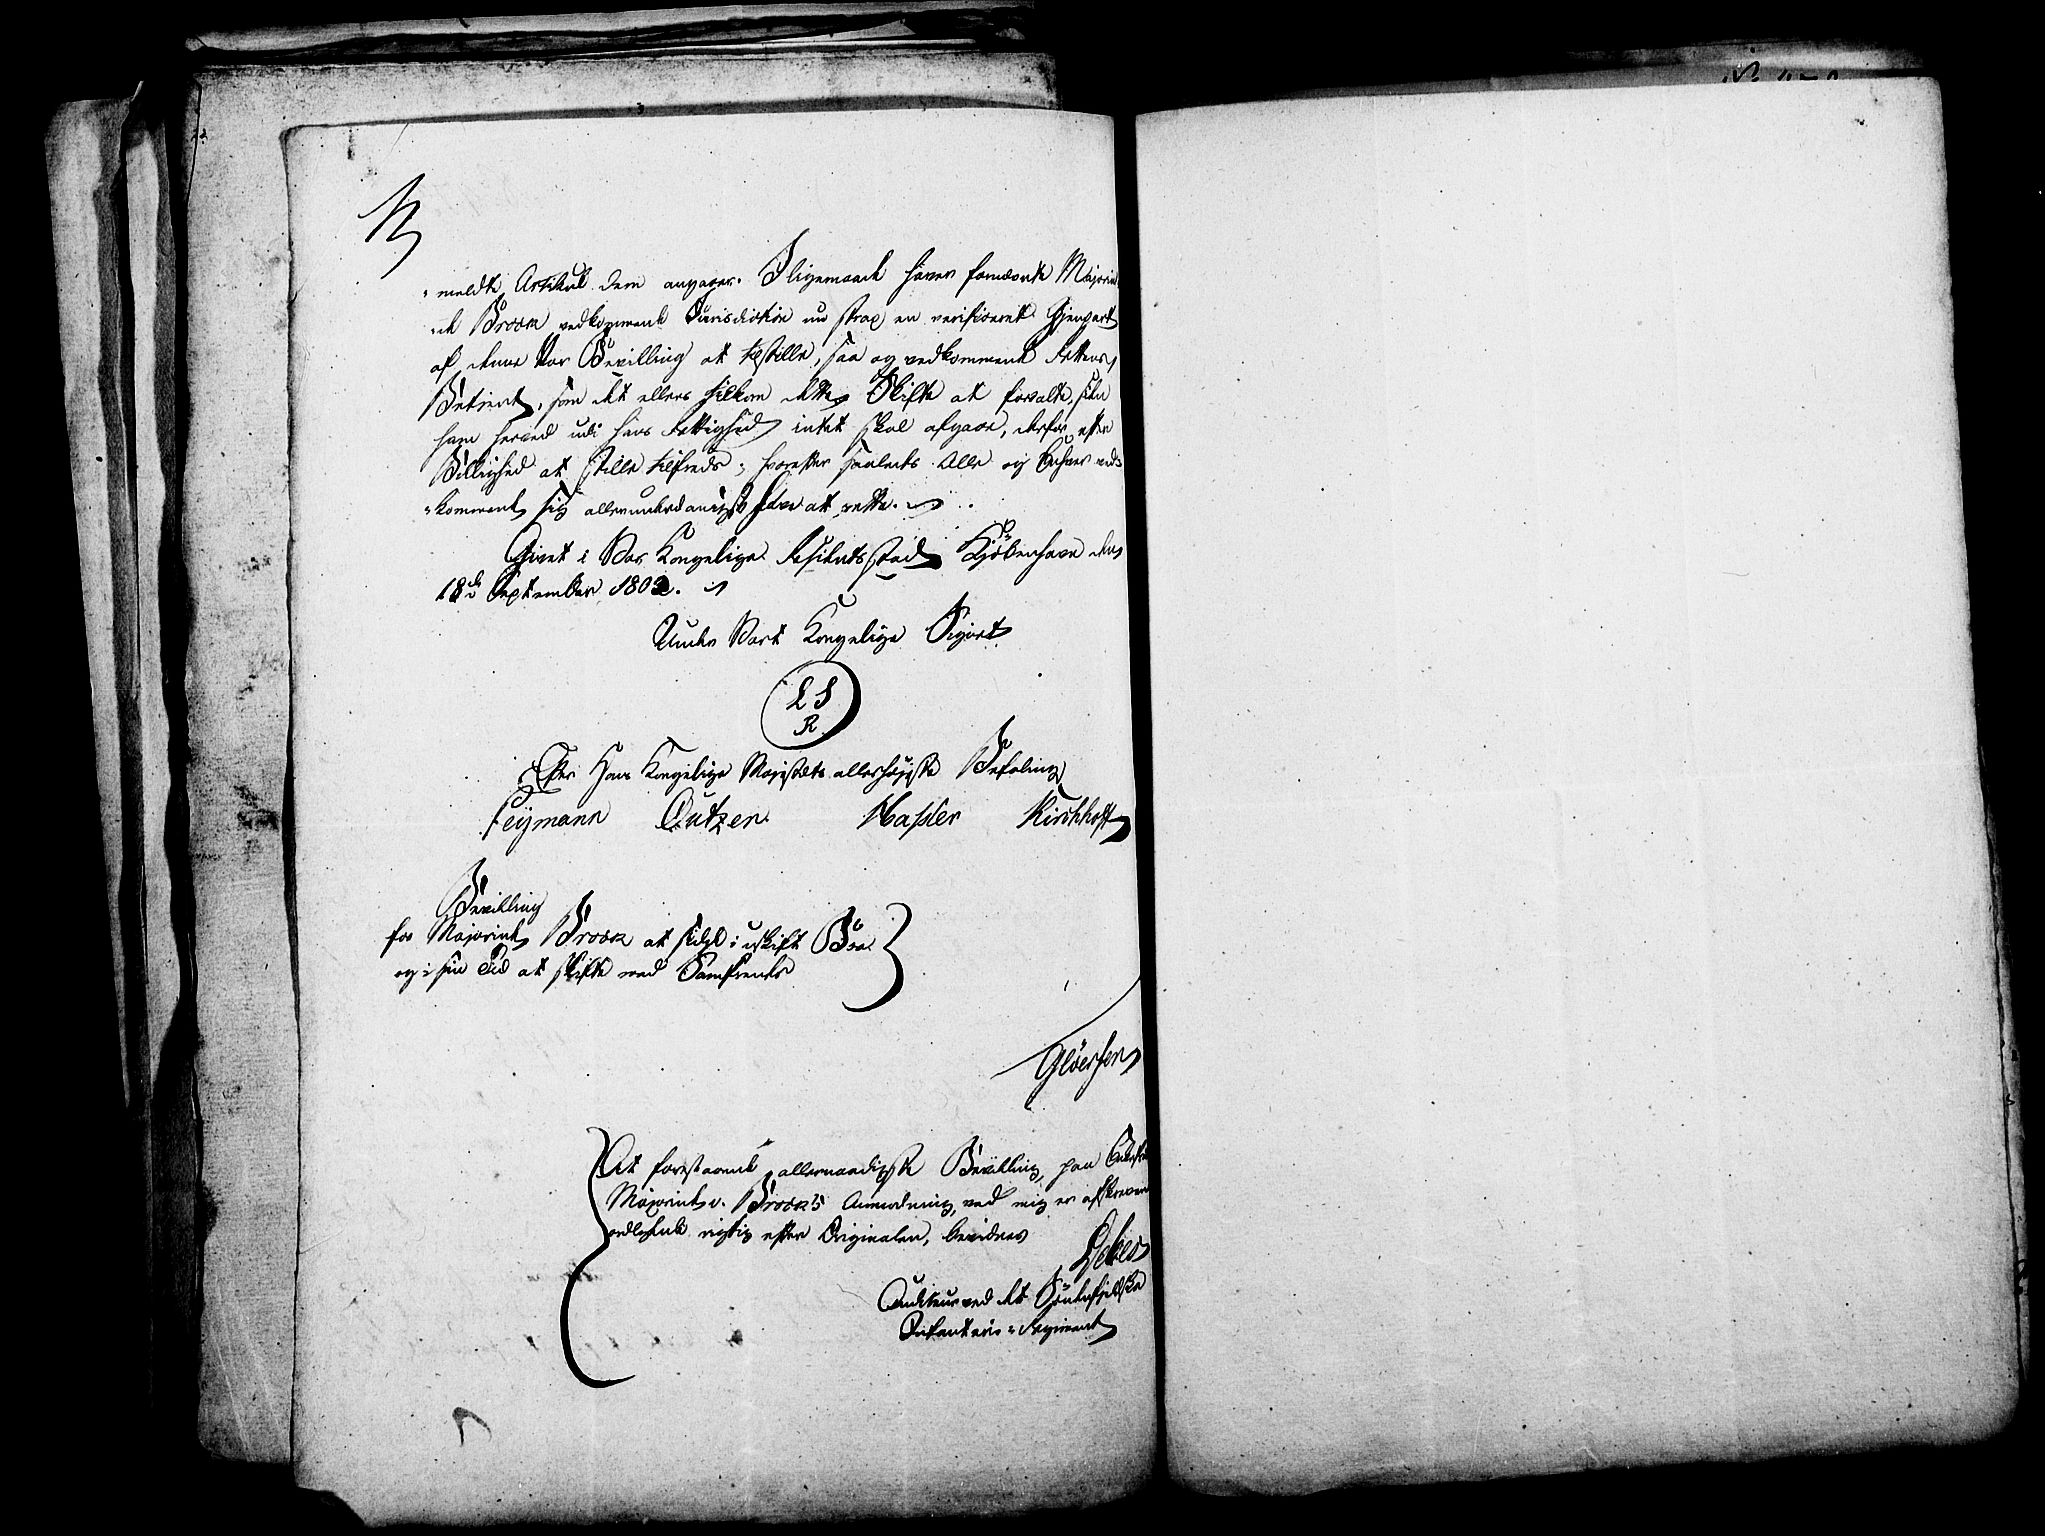 meldte Artikel dem angaaer. Iligemaade haver fornævnte Majorin-
de Broch vedkommende Jurisdiction nu strax en verificeret Gjenpart
af denne Vor Bevilling at tilstille, saa og vedkommende Rettens
Betient, som det ellers tilkom dette Skifte at forvalte, siden
ham herved udi hans Rettighed intet skal afgaae, derfor efter
Billighed at stille tilfreds; hvorefter saaledes Alle og Enhver ved-
kommende sig allerunderdanigst have at rette.
Givet i Vor Kongelige Residentsstad Kjöbenhavn den
18de September 1802.
Under Vort Kongelige Signet
L S
R
Efter Hans Kongelige Majestæts allerhøjeste Befaling
Feÿmann Outzen Hassler Kirchhoff
Bevilling
for Majorinde Broch at sidde i uskift Boe
og i sin Tid at skifte med Samfrender
Glöersen
At forestaaende allernaadigste Bevilling, paa
Majorinde v. Brochs Anmodning, ved mig er afskreven
ordlydende rigtig efter Originalen, bevidner
Auditeur ved det Söndenfieldske
Infanterie-Regiment